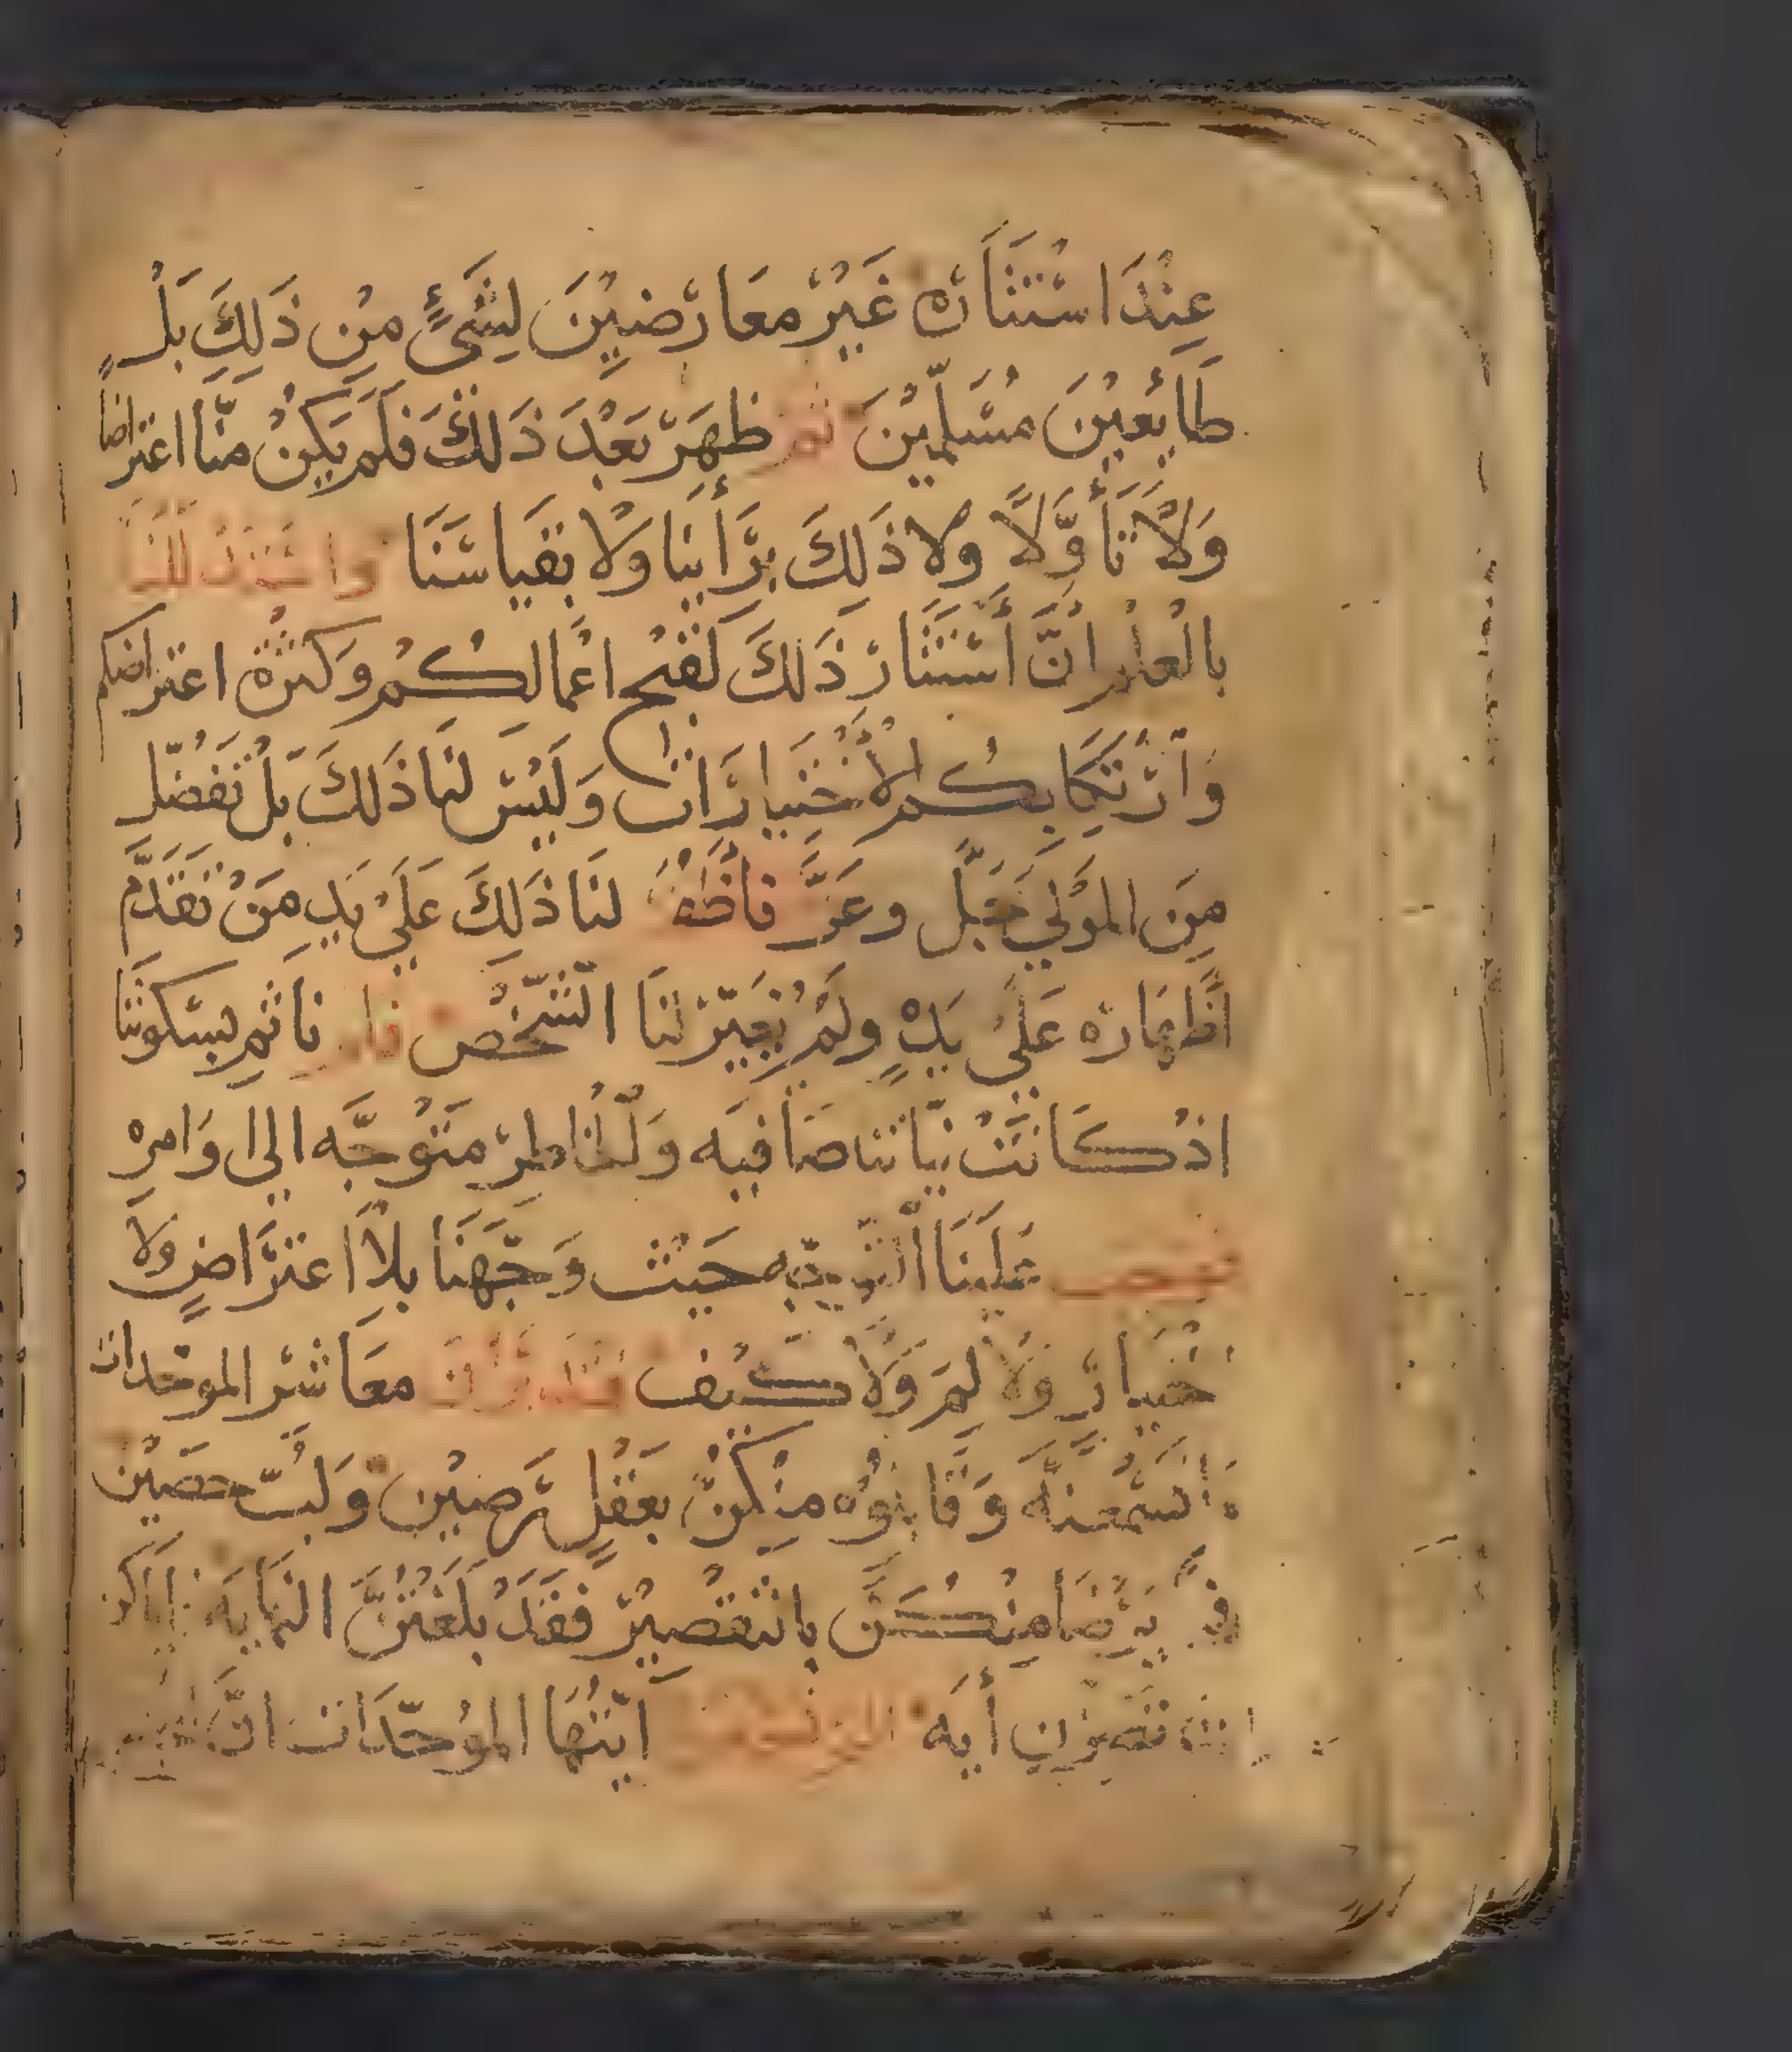 عِنْدَ اسْتَنَارَه غَيْرْ مَعَارْضِيْنَ لِشَيءٍ مِنْ ذَلِكَ بَلْ
طَائعِيْنَ مُسَلِّمِيْنَ ثم ظهَرَ بَعْدَ ذَلكَ فلَم يَكِنْ منَّا اعتراضا
وَلَا تَأَوَّلاً ولا ذَلِكَ بِرَأينَا وَلا بقيَاسَنَا
بالْعلم انَّ أسْتَتَارْ ذَلكَ لقبْح اعْمالكُم وَكثرة اعتراضكم
وَارْتكَابكُم الاخْتيَارَات وَلَيْسَ لنَا ذَلكَ بلْ تَفَضّل
مِنَ الموْلي جَلَّ وعَزَّ فاظهر لنَا ذَلكَ عَلَيْ يَدِ مَنْ تَقدَّم
اظهَارَه عَلَيْ يَدِهِ ولَمْ يُعَيّرْ لنَا الشّخْص فلم ناثم بسكوتنَا
اذْ كَانَتْ نيَاتنا صَافيَه وَلخَاطرْ مَتوُجَّه الي اوَامرِه
عَلينَا حَيْث وَجّهَنَا بلا اعترَاضٍ ولا
اخْتيَارٍ وَلا لِمَ وَلا كَيْف معَاشْر الموحّدات
وَقابلوُه منكنَّ بعَقْلٍ رَصِيْن وَلُبّ حصَيْن
يَرْضَا منكَنَّ بالتّقصيْر فقَدْ بلَغتُنَّ النهَايَه
أيَه ايّتُهَا الموُحّدَات انَّ